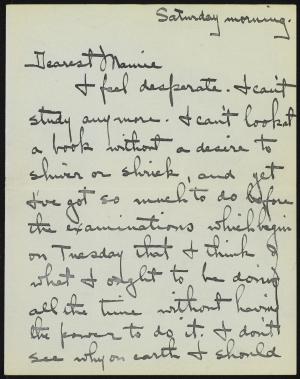 Saturday morning.
Dearest Mamie
I feel desperate. I can't
study any more. I can't look at
a book without a desire to
shiver or shriek, and yet
I've got so much to do before
the examinations which begin
on Tuesday that I think I
what I ought to be doing
all the time without having
the power to do it. I don't
see why on earth I should